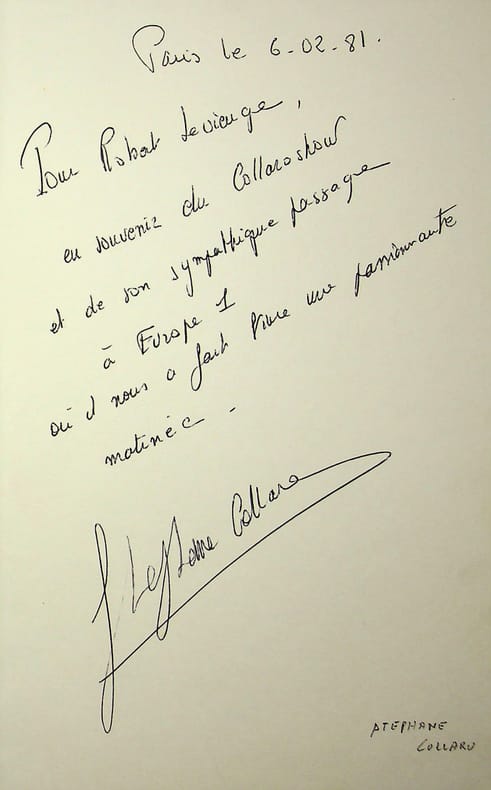 Paris le 6-02-81.
Pour Robert Levieuge,
en souvenir du Collaroshow
et de son sympathique passage
à Europe 1
où il nous a fait vivre une passionnante
matinée -
Stephane Collaro
STEPHANE
COLLARO